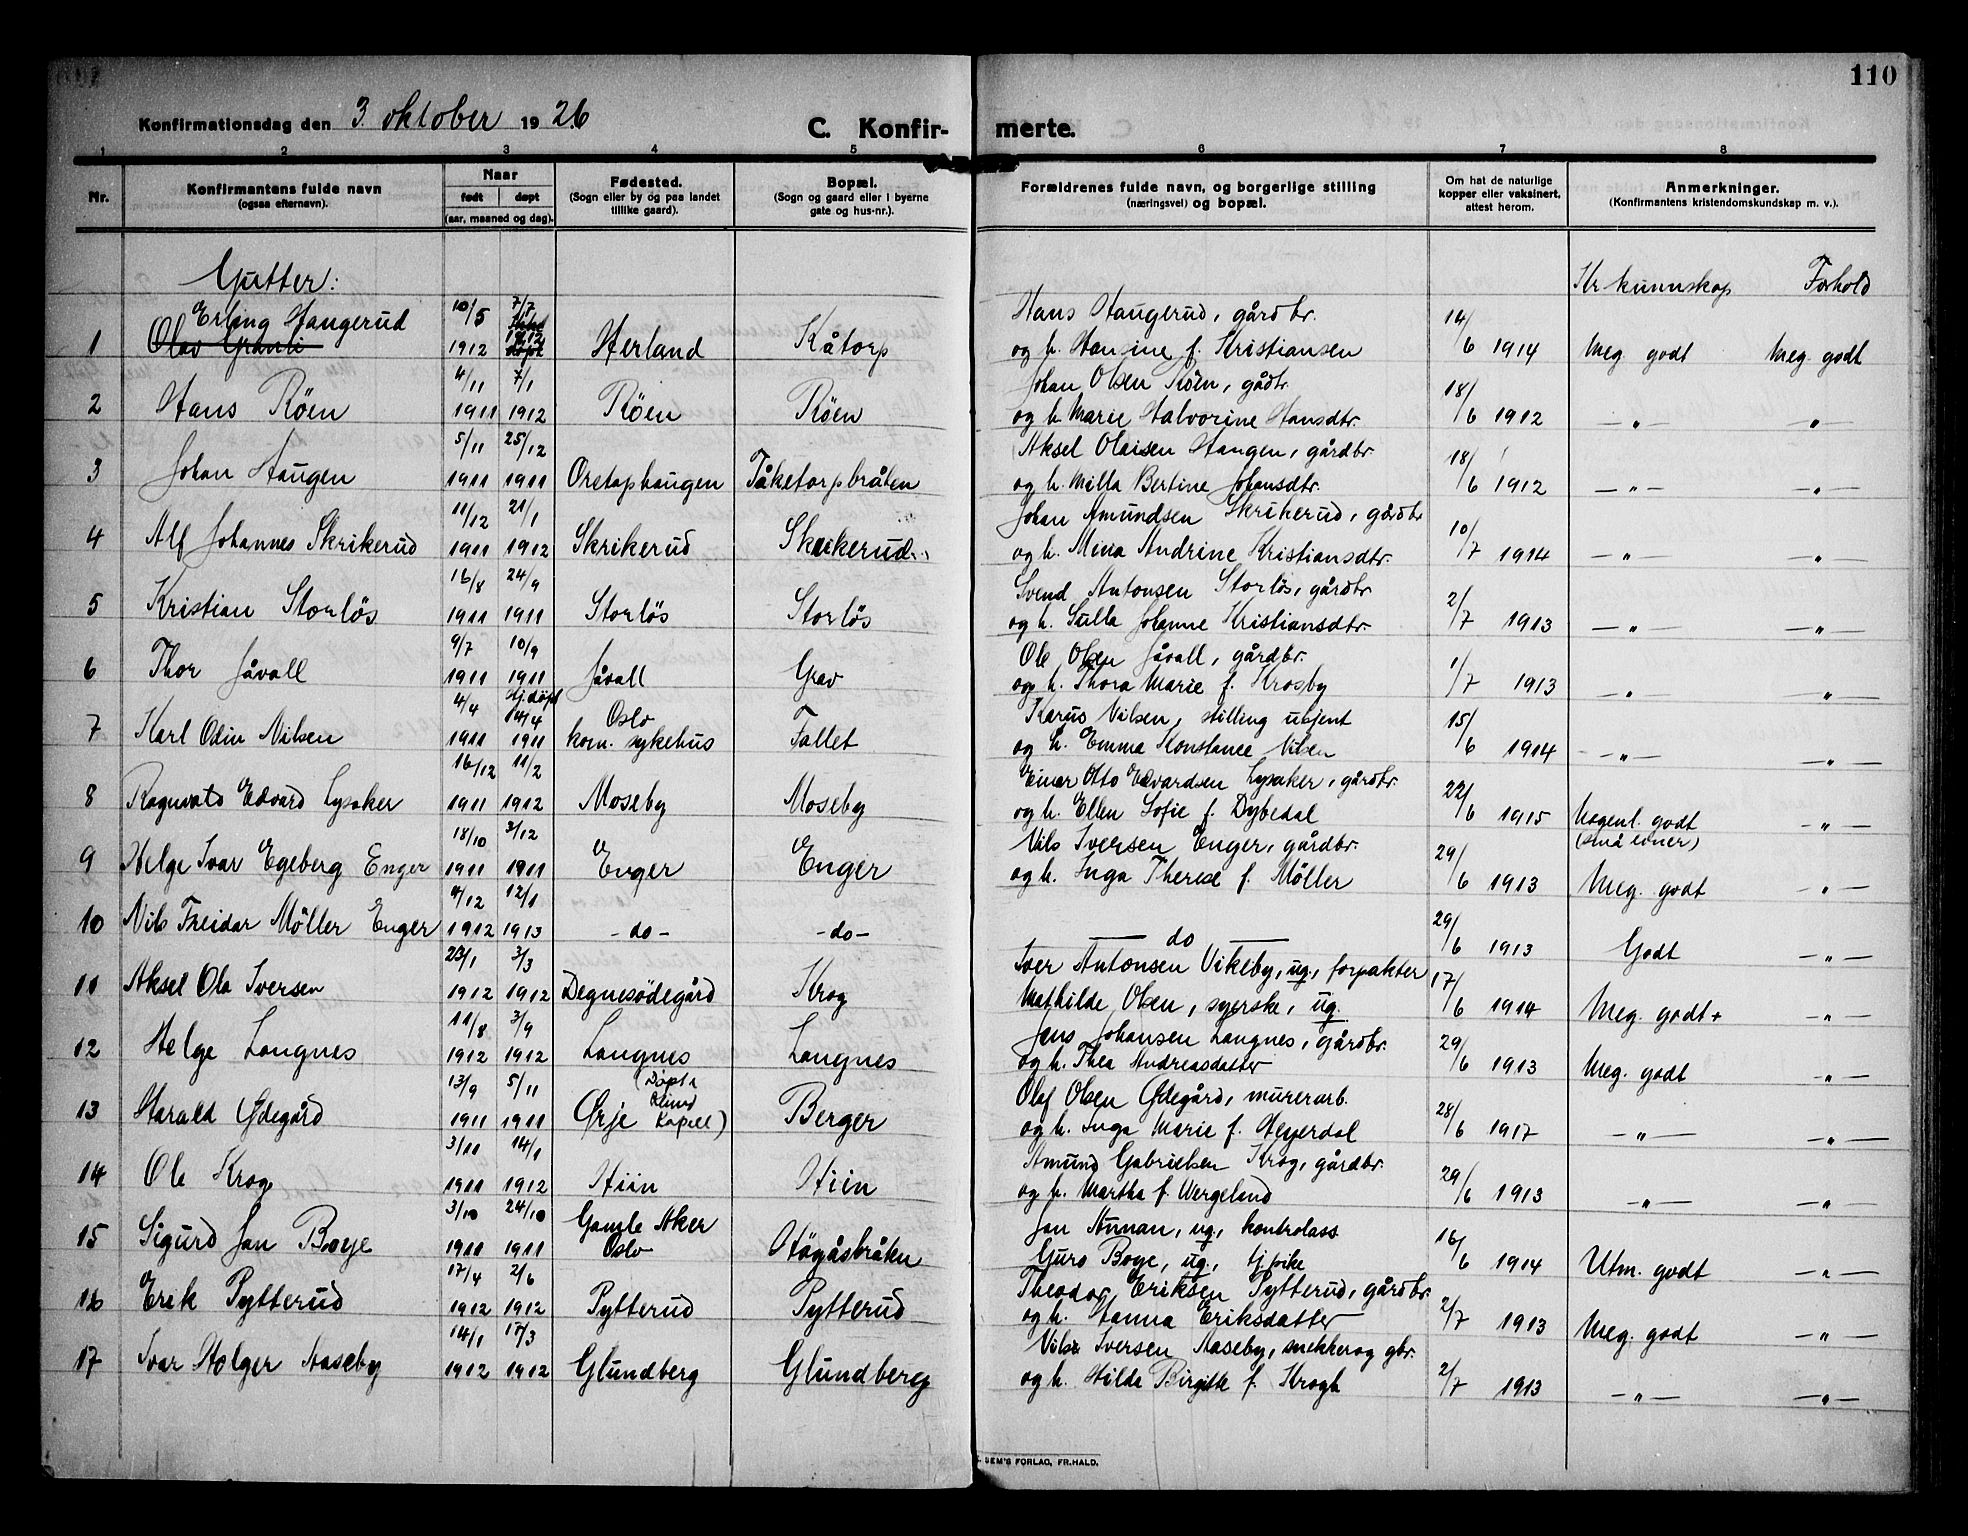 110
Konfirmationsdag den 3. oktober 1926
C. Konfir- merte.
1 2 3 4 5 6 7 8
Nr.
Konfirmantens fulde navn
(ogsaa efternavn).
Naar
født døpt
(aar, maaned og dag).
Fødested.
(Sogn eller by og paa landet
tillike gaard).
Bopæl.
(Sogn og gaard eller i byerne
gate og hus-nr.).
Forældrenes fulde navn, og borgerlige stilling
(næringsvei) og bopæl.
Om hat de naturlige
kopper eller vaksinert,
attest herom.
Anmerkninger.
(Konfirmantens kristendomskundskap m. v.).
Gutter: Kr kunnskap Forhold
Erling Haugerud 10/5 7/7 Hans Haugerud, gårdbr. 14/6
1 Olav Granli 1912 1912 Herland Kåtorp og h. Hansine f. Kristiansen 1914 Meg. godt Meg. godt
4/11 7/1 Johan Olsen Röen, gådbr. 18/6
2 Hans Röen 1911 1912 Röen Röen og h. Marie Halvorine Hansdtr. 1912 —„— —„—
5/11 25/12 Aksel Olaisen Haugen, gårdbr 18/6
3 Johan Haugen 1911 1911 Oretaphaugen Tåketorpbråten og h. Milla Bertine Johansdtr. 1912 —„— —„—
11/12 21/1 Johan Amundsen Skrikerud, gårdbr 10/7
4 Alf Johannes Skrikerud 1911 1912 Skrikerud Skrikerud og h. Mina Andrine Kristiansdtr. 1914 —„— —„—
16/8 24/9 Svend Antonsen Storlös, gårdbr 2/7
5 Kristian Storlös 1911 1911 Storlös Storlös og h. Sulla Johanne Kristiansdtr. 1913 —„— —„—
9/7 10/9 Ole Olsen Jåvall, gårdbr. 1/7
6 Thor Jåvall 1911 1911 Jåvall Grav og h. Thora Marie f. Krosby 1913 —„— —„—
4/4 Hj. döpt 14/4 Oslo Karus Nilsen, stilling ukjent 15/6
7 Karl Odin Nilsen 1911 1911 kom. sykehus Fallet og h. Emma Konstance Nilsen 1914 —„— —„—
16/12 11/2 Einar Otto Edvardsen Lysaker, gårdbr. 22/6
8 Ragnvald Edvard Lysaker 1911 1912 Moseby Moseby og h. Ellen Sofie f. Dybedal 1915 Nogenl. godt —„—
(små evner)
18/10 3/12 Nils Iversen Enger, gårdbr. 29/6
9 Helge Ivar Egeberg Enger 1911 1911 Enger Enger og h. Inga Therese f. Möller 1913 Meg. godt —„—
4/12 12/1 29/6
10 Nils Freidar Möller Enger 1912 1913 -do- -do- — do — 1913 Godt —„—
23/1 3/3 Iver Antonsen Vikeby, ug., forpakter 17/6
11 Aksel Ola Iversen 1912 1912 Degnesödegård Krog Mathilde Olsen, syerske, ug. 1914 Meg. godt+ —„—
11/8 3/9 Jens Johansen Langnes, gårdbr. 29/6
12 Helge Langnes 1912 1912 Langnes Langnes og h. Thea Andreasdatter 1913 Meg. godt —„—
13/9 5/11 (Döpt i Olaf Olsen Ødegård, murerarb. 28/6
13 Harald Ødegård 1911 1911 Ørje Kapell) Berger og h. Inga Marie f. Heyerdal 1917 —„— —„—
3/11 14/1 Amund Gabrielsen Krog, gårdbr. 29/6
14 Ole Krog 1911 1912 Hiin Hiin og h. Martha f. Wergeland 1913 —„— —„—
3/10 24/10 Gamle Aker Jan Aunan, ug., kontrolass 16/6
15 Sigurd Jan Boye 1911 1911 Oslo Högåsbråten Guro Boye, ug., tj.pike 1914 Utm. godt —„—
17/4 2/6 Theodor Eriksen Pytterud, gårdbr. 2/7
16 Erik Pytterud 1912 1912 Pytterud Pytterud og h. Hanna Eriksdatter 1913 Meg. godt —„—
14/1 17/3 Nils Iversen Aaseby, snekker og gbr. 2/7
17 Ivar Holger Aaseby 1912 1912 Glundberg Glundberg og h. Hilda Birgitte f. Krogh 1913 —„— —„—
SEM'S FORLAG, FR.HALD.